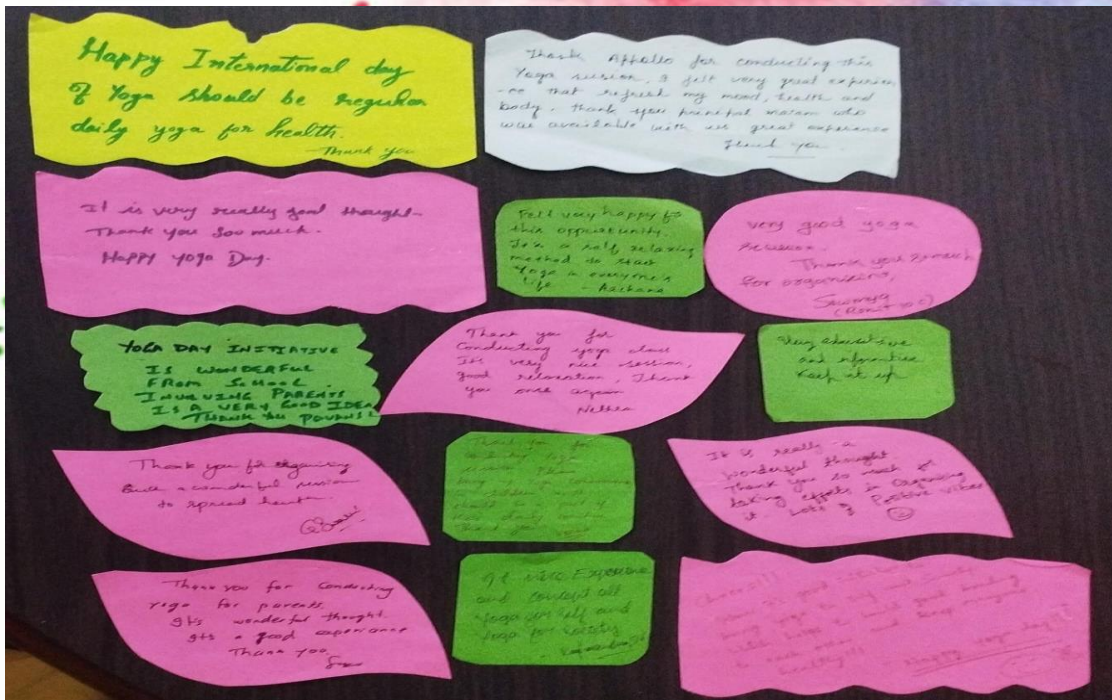 Happy International day
of Yoga should be regular
daily yoga for health.
—Thank you
Thank Appollo for conducting this
Yoga session, I felt very great experien
-ce that refresh my mood, health and
body. Thank you principal maam who
was available with us great experience
Thank you.
It is very really good thought-
Thank you soo much.
Happy Yoga Day.
Felt very happy for
this opportunity.
Its a self relaxing
method to start
Yoga in everyone's
life - Archana
very good yoga
session.
Thank you so much
for organising,
Sowmya
YOGA DAY INITIATIVE
IS WONDERFUL
FROM SCHOOL.
INVOLVING PARENTS
IS A VERY GOOD IDEA
THANK YOU
Thank you for
Conducting yoga class
It's very nice session,
good relaxation, Thank
you once again
Nethra
Very
and informative
Keep it up
Thank you for organising
Such a wonderful session
to spread health
Thank you for
conducting Yoga
It is really a
wonderful thought.
Thank you so much for
taking efforts in Organising
it. Lots of Positive vibes
Thank you for Conducting
yoga for parents.
Its wonderful thought.
Its a good experience
Thank You
of Nice Experience
and concept all
Yoga for self and
Yoga for society
good
to each other and keep everyone
healthy!!!
Happy yoga day!!